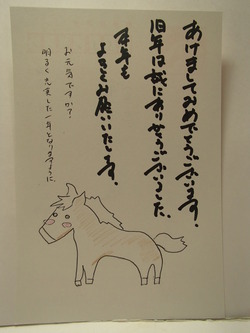 あけましておめでとうございます。
旧年は誠にありがとうございました。
本年も
よろしくお願いいたします。
お元気ですか?
明るく充実した一年となりますように。